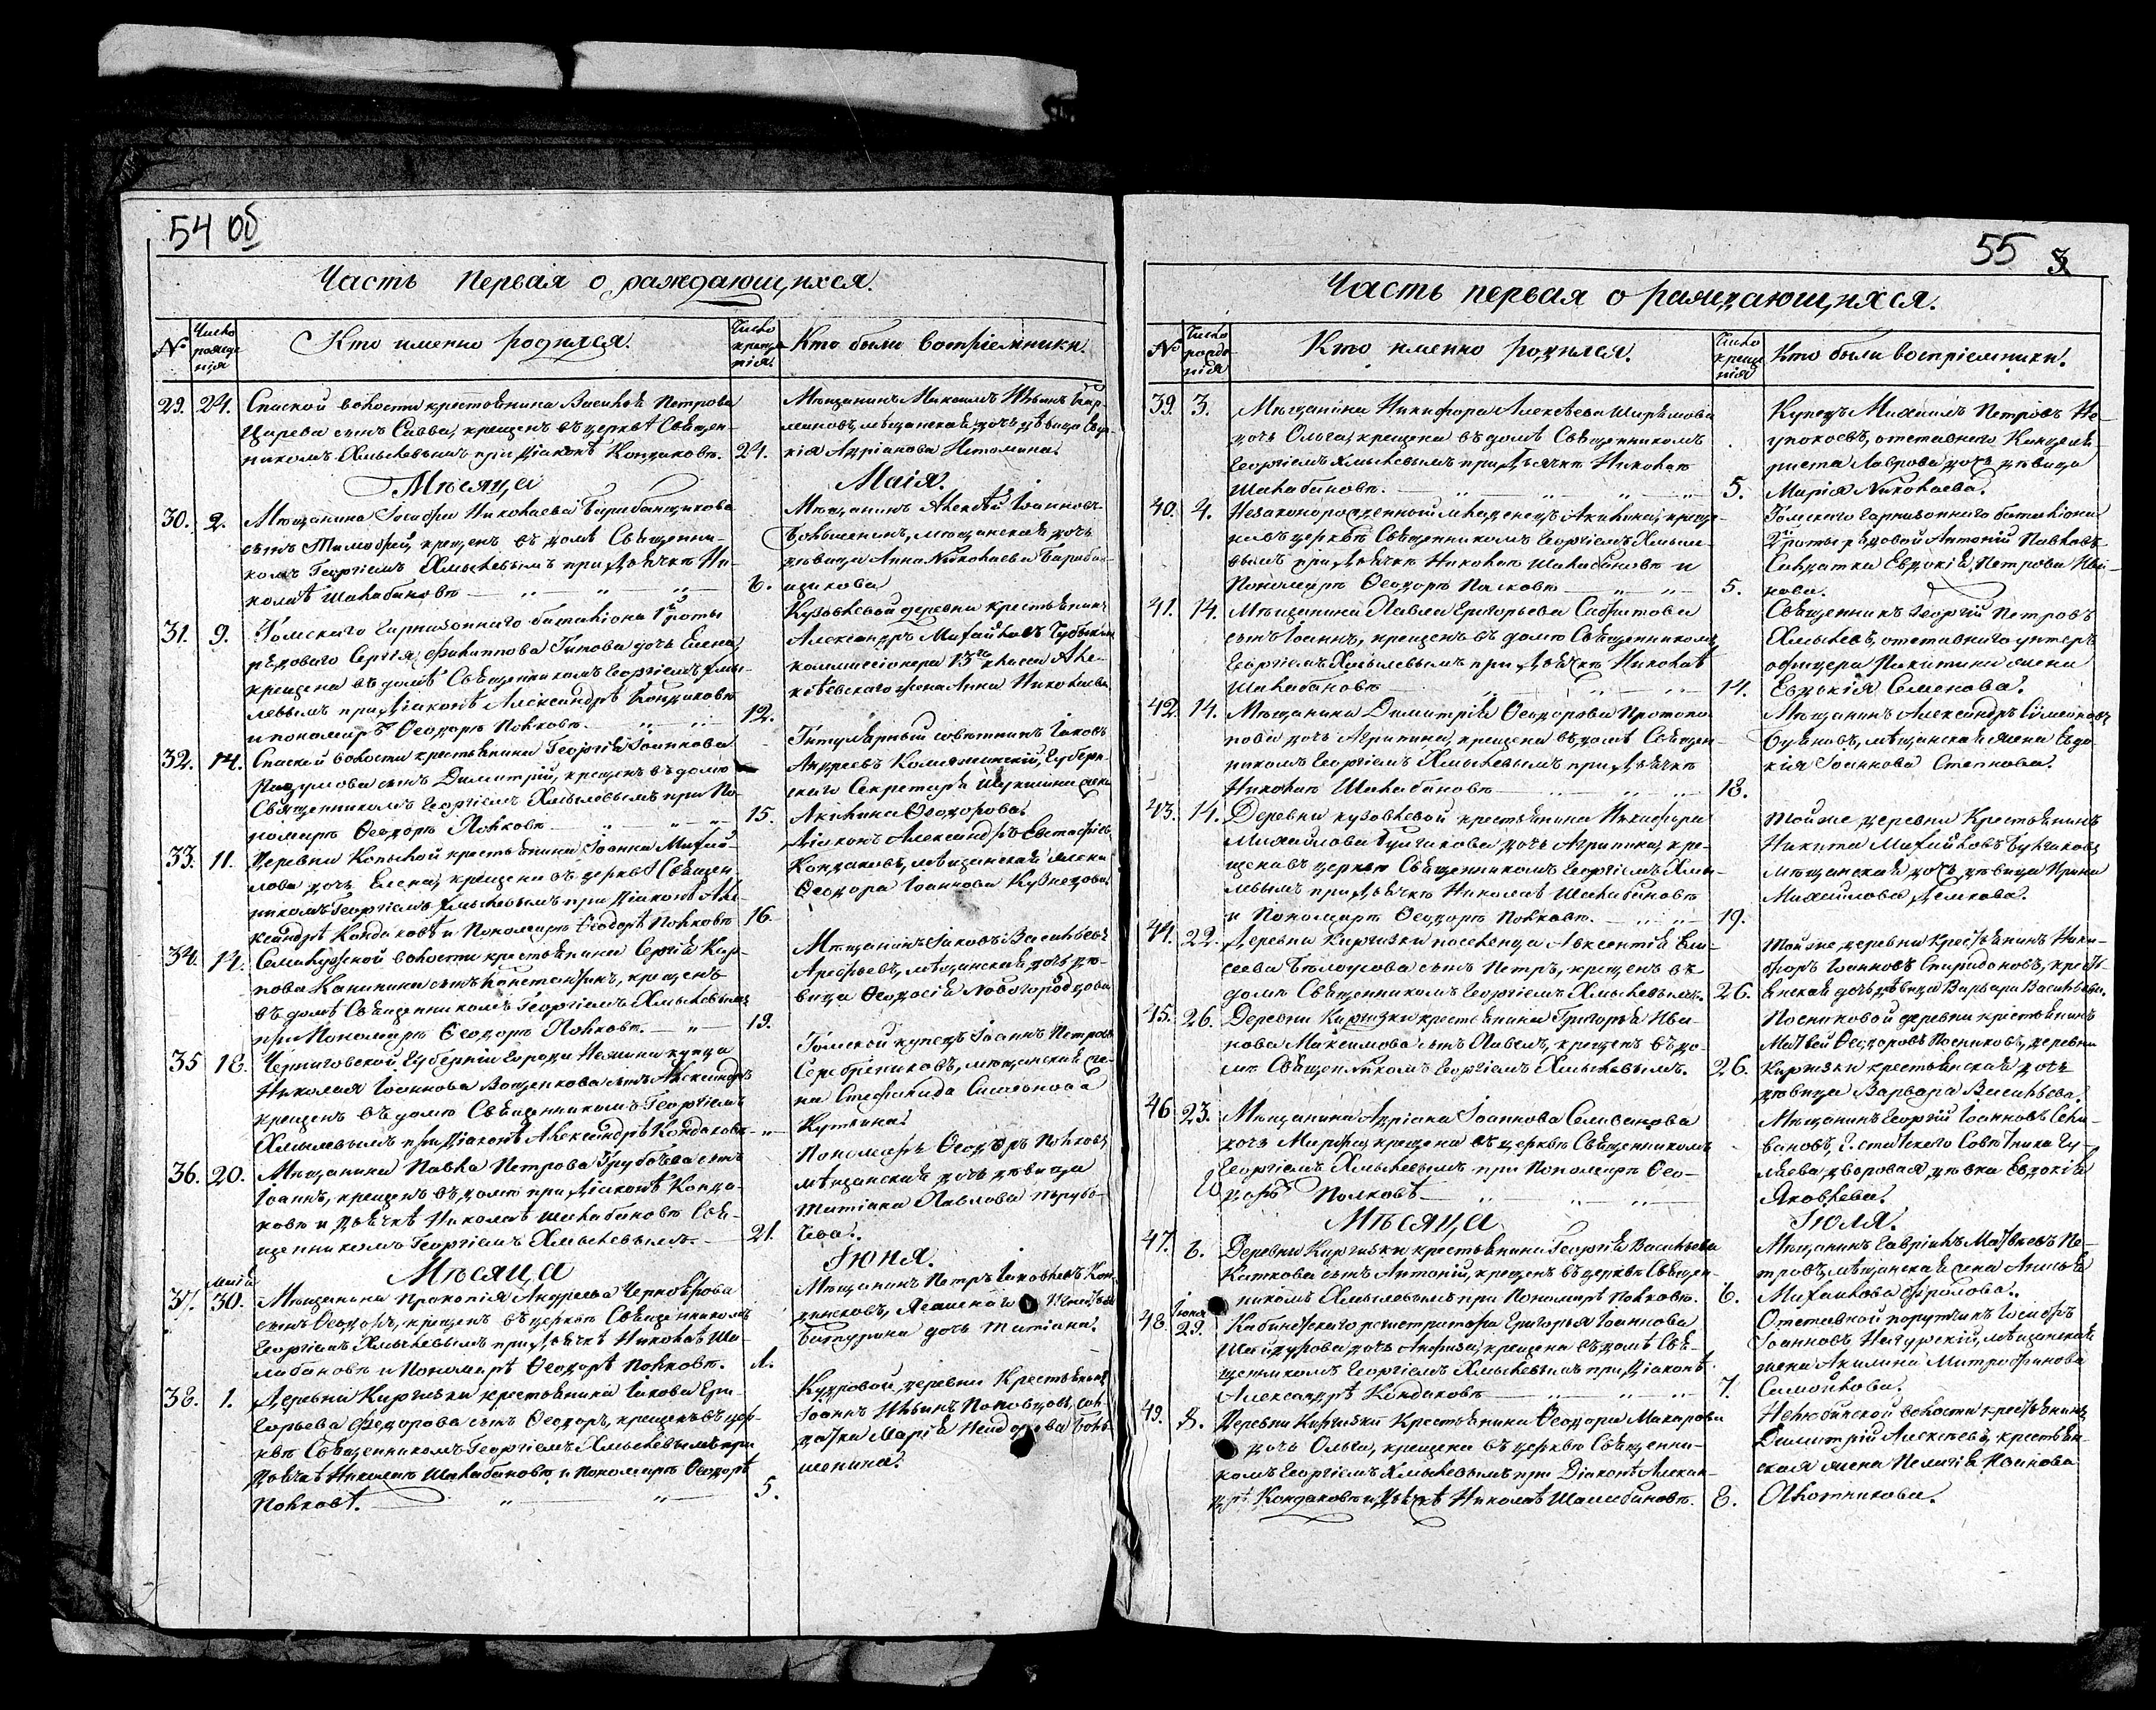 54 об
Часть Первая о раждающихся.
№ Число рожде нія Кто именно родился. Число креще нія. Кто были воспріемники.
29. 24. Спаской волости крестьянина Василья Петрова
Царева сынъ Савва, крещенъ въ церквѣ Священ-
никомъ Хмылевымъ при Діаконѣ Кондаковѣ. 24.
Мѣщанинъ Максимъ
мѣщанская дочь дѣвица
кія Адріанова
Мѣсяца Маія.
30. 2. Мѣщанина Іосифа Николаева Барабанщикова
сынъ Тимофей, крещенъ въ домѣ Священни-
комъ Георгіемъ Хмылевымъ при Дьячкѣ Ни-
колаѣ Шалабановѣ 6.
Мѣщанинъ Алексѣй Іоанновъ
мѣщанская дочь
дѣвица Анна Николаева Бараба-
щикова
31. 9. Томскаго Гарнизоннаго баталіона 1й роты
рядоваго Сергія Филиппова Титова дочь Елена,
крещена въ домѣ Священникомъ Георгіемъ Хмы-
левымъ при Діаконѣ Александрѣ Кондаковѣ
и пономарѣ Ѳеодорѣ Полковѣ. 12.
Кузовлевой деревни крестьянинъ
Александръ Михайловъ
коммиссіонера 13го класса Але-
ксѣевскаго жена Анна Николаева
32. 14. Спаской волости крестьянина Георгія Іоаннова
Разумова сынъ Димитрій, крещенъ въ домѣ
Священникомъ Георгіемъ Хмылевымъ при По-
номарѣ Ѳеодорѣ Полковѣ 15.
Титулярный совѣтникъ Іаковъ
Андреевъ Губерн-
скаго Секретаря жена
Акилина Ѳеодорова.
33. 11. Деревни Копылой крестьянина Іоанна Михай-
лова дочь Елена, крещена въ церквѣ Священ-
никомъ Георгіемъ Хмылевымъ при Діаконѣ Але-
ксандрѣ Кондаковѣ и Пономарѣ Ѳеодорѣ Полковѣ 16.
Діаконъ Александръ Евстафіевъ
Кондаковъ, мѣщанская жена
Ѳеодора Іоаннова Кузнецова.
34. 14. Семилужной волости крестьянина Сергія Кар-
пова Калинина сынъ Константинъ, крещенъ
въ домѣ Священникомъ Георгіемъ Хмылевымъ
при Пономарѣ Ѳеодорѣ Полковѣ. 19.
Мѣщанинъ Іаковъ Васильевъ
Арефьевъ, мѣщанская дочь дѣ-
вица Ѳеодосія Новогородцова
35 18. Черниговской Губерніи Города Нежина купца
Николая Іоаннова Вощенкова сынъ Александръ
крещенъ въ домѣ Священникомъ Георгіемъ
Хмылевымъ при Діаконѣ Александрѣ Кондаковѣ
Томской купецъ Іоаннъ Петровъ
Серебрениковъ, мѣщанская же-
на Стефанида
36. 20. Мѣщанина Павла Петрова Трубачева сынъ
Іоаннъ, крещенъ въ домѣ при Діаконѣ Конда-
ковѣ и Дьячкѣ Николаѣ Шалабановѣ Свя-
щенникомъ Георгіемъ Хмылевымъ. 21.
Пономарь Ѳеодоръ Полковъ,
мѣщанская дочь дѣвица
Татіана Павлова Труба-
чева.
Мѣсяца Іюня.
37. Маія 30. Мѣщанина Прокопія Андреева Чернояpова
сынъ Ѳеодоръ, крещенъ въ церквѣ Священникомъ
Георгіемъ Хмылевымъ при Дьячкѣ Николаѣ Ша-
лабановѣ и Пономарѣ Ѳеодорѣ Полковѣ. 1.
Мѣщанинъ Петръ Іаковлевъ
дочь Татіана.
38. 1. Деревни Киргизки крестьянина Іакова Гри-
горьева Федорова сынъ Ѳеодоръ, крещенъ въ цер-
квѣ Священникомъ Георгіемъ Хмылевымъ при
Дьячкѣ Николаѣ Шалабановѣ и Пономарѣ Ѳеодорѣ
Полковѣ. 5.
Кудровой деревни Крестьянинъ
Іоаннъ Ильинъ сол-
датка Марія
55 3
Часть первая о раждающихся.
№ Число рожде нія Кто именно родился. Число креще нія Кто были воспріемники.
39. 3. Мѣщанина Никифора Алексѣева Ширямова
дочь Ольга, крещена въ домѣ Священникомъ
Георгіемъ Хмылевымъ при Дьячкѣ Николаѣ
Шалабановѣ. 5.
Купецъ Михаилъ Петровъ Не-
упокоевъ, отставнаго Канцеля-
риста Лаврова дочь дѣвица
Марія Николаева.
40. 4. Незаконорожденной младенецъ Акилина, креще-
на въ церквѣ Священникомъ Георгіемъ Хмыле-
вымъ при Дьячкѣ Николаѣ Шалабановѣ и
Пономарѣ Ѳеодорѣ Полковѣ 5.
Томскаго Гарнизоннаго баталіона
2й роты рядовой Антоній Павловъ
Солдатка Евдокія Петрова Ива-
нова.
41. 14. Мѣщанина Павла Григорьева Сафитова
сынъ Іоаннъ, крещенъ въ домѣ Священникомъ
Георгіемъ Хмылевымъ при Дьячкѣ Николаѣ
Шалабановѣ 14.
Священникъ Георгій Петровъ
Хмылевъ, отставнаго унтеръ
офицера Никитина жена
Евдокія Семенова.
42. 14. Мѣщанина Димитрія Ѳеодорова Протопо-
пова дочь Агрипина, крещена въ домѣ Священ-
никомъ Георгіемъ Хмылевымъ при Дьячкѣ
Николаѣ Шалабановѣ 18.
Мѣщанинъ Александръ Симеоновъ
мѣщанская жена Евдо-
кія Іоаннова Степнова.
43. 14. Деревни кузовлевой крестьянина Никифора
Михайлова Булгакова дочь Агрипина, кре-
щена въ церквѣ Священникомъ Георгіемъ Хмы-
левымъ при Дьячкѣ Николаѣ Шалабановѣ
и Пономарѣ Ѳеодорѣ Полковѣ. 19.
Той же деревни Крестьянинъ
Никита Михайловъ Булгаковъ
мѣщанская дочь дѣвица Ирина
Михайлова
44. 22. Деревни Киргизки поселенца Авксентія Ели-
сеева Бѣлоусова сынъ Петръ, крещенъ въ
домѣ Священникомъ Георгіемъ Хмылевымъ. 26.
Той же деревни Крестьянинъ Ники-
форъ Іоанновъ Спиридоновъ, кресть-
янская дочь дѣвица Варвара Васильева.
45. 26. Деревни Киргизки крестьянина Григорья Ива-
нова Максимова сынъ Павелъ, крещенъ въ до-
мѣ Священникомъ Георгіемъ Хмылевымъ. 26.
Посниковой деревни крестьянинъ
Матвей Ѳеодоровъ Посниковъ, деревни
Киргизки крестьянская дочь
дѣвица Варвара Васильева.
46. 23. Мѣщанина Адріана Іоаннова Селиванова
дочь Марфа, крещена въ церквѣ Священникомъ
Георгіемъ Хмылевымъ при Пономарѣ Ѳео-
дорѣ Полковѣ
Мѣщанинъ Георгій Іоанновъ Сели-
вановъ, статскаго Совѣтника Гу-
ляева дворовая дѣвка Евдокія
Яковлева.
Мѣсяца Іюля.
47. 6. Деревни Киргизки крестьянина Георгія Васильева
Каткова сынъ Антоній, крещенъ въ церквѣ Священ-
никомъ Хмылевымъ при Пономарѣ Полковѣ. 6.
Мѣщанинъ Гавріилъ Матвеевъ Пе-
тровъ, мѣщанская жена
Михайлова Фролова.
48. Іюня 29. Кабинетскаго регистратора Григорья Іоаннова
дочь Анфиса, крещена въ домѣ Свя-
щенникомъ Георгіемъ Хмылевымъ при Діаконѣ
Александрѣ Кондаковѣ 7.
Отставной порутчикъ Іосифъ
Іоанновъ мѣщанская
жена Акилина Митрофанова
Самойлова.
49. 8. Деревни Киргизки Крестьянина Ѳеодора Макарова
дочь Ольга, крещена въ церквѣ Священни-
комъ Георгіемъ Хмылевымъ при Діаконѣ Алексан-
дрѣ Кондаковѣ и Дьячкѣ Николаѣ Шалабановѣ. 8.
Нелюбинской волости крестьянинъ
Димитрій Алексеевъ, крестьян-
ская жена Пелагія Иванова